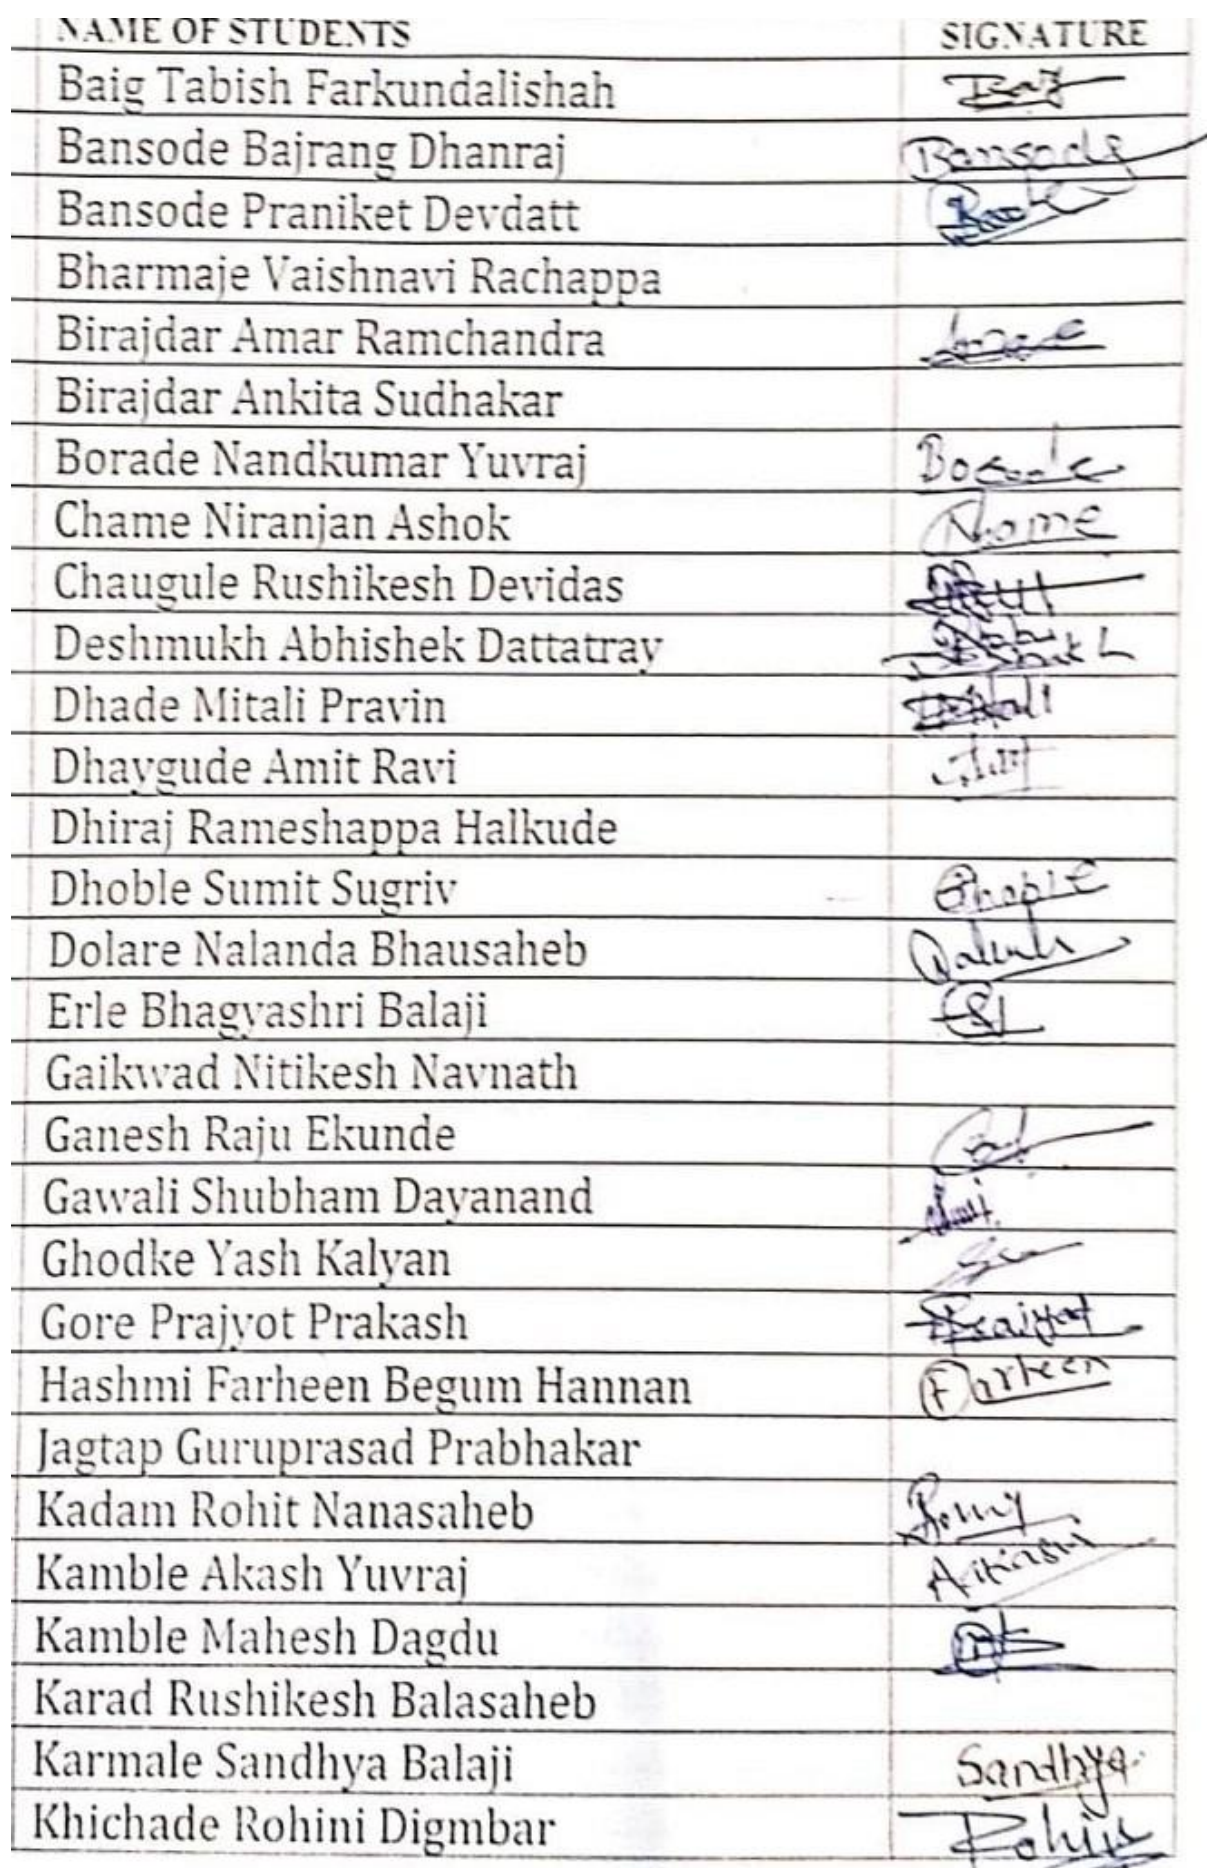 NAME OF STUDENTS SIGNATURE
Baig Tabish Farkundalishah
Bansode Bajrang Dhanraj Bansode
Bansode Praniket Devdatt
Bharmaje Vaishnavi Rachappa
Birajdar Amar Ramchandra
Birajdar Ankita Sudhakar
Borade Nandkumar Yuvraj Borade
Chame Niranjan Ashok
Chaugule Rushikesh Devidas
Deshmukh Abhishek Dattatray
Dhade Mitali Pravin
Dhaygude Amit Ravi
Dhiraj Rameshappa Halkude
Dhoble Sumit Sugriv
Dolare Nalanda Bhausaheb
Erle Bhagyashri Balaji
Gaikwad Nitikesh Navnath
Ganesh Raju Ekunde
Gawali Shubham Dayanand
Ghodke Yash Kalyan
Gore Prajyot Prakash Prajyot
Hashmi Farheen Begum Hannan Farheen
Jagtap Guruprasad Prabhakar
Kadam Rohit Nanasaheb
Kamble Akash Yuvraj
Kamble Mahesh Dagdu
Karad Rushikesh Balasaheb
Karmale Sandhya Balaji Sandhya
Khichade Rohini Digmbar Rohini